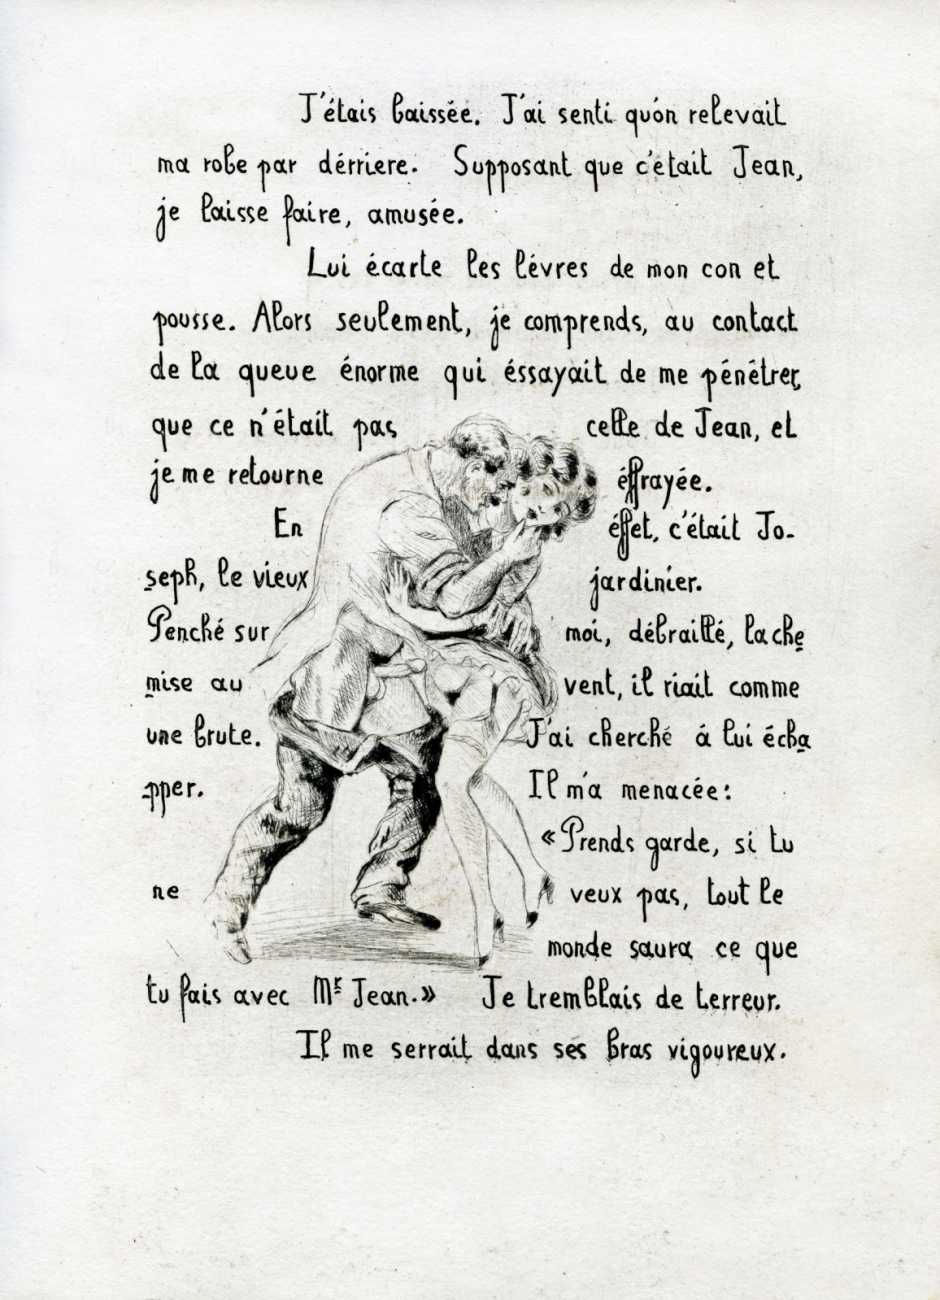 J'étais baissée. J'ai senti qu'on relevait
ma robe par dérriere. Supposant que c'était Jean,
je laisse faire, amusée.
Lui écarte les lévres de mon con et
pousse. Alors seulement, je comprends, au contact
de la queue énorme qui éssayait de me pénétrer,
que ce n'était pas celle de Jean, et
je me retourne éffrayée.
En éffet, c'était Jo-
seph, le vieux jardinier.
Penché sur moi, débraillé, la che
mise au vent, il riait comme
une brute. J'ai cherché á lui écha
pper. Il m'a menacée:
«Prends garde, si tu
ne veux pas, tout le
monde saura ce que
tu fais avec Mr Jean.» Je tremblais de terreur.
Il me serrait dans ses bras vigoureux.